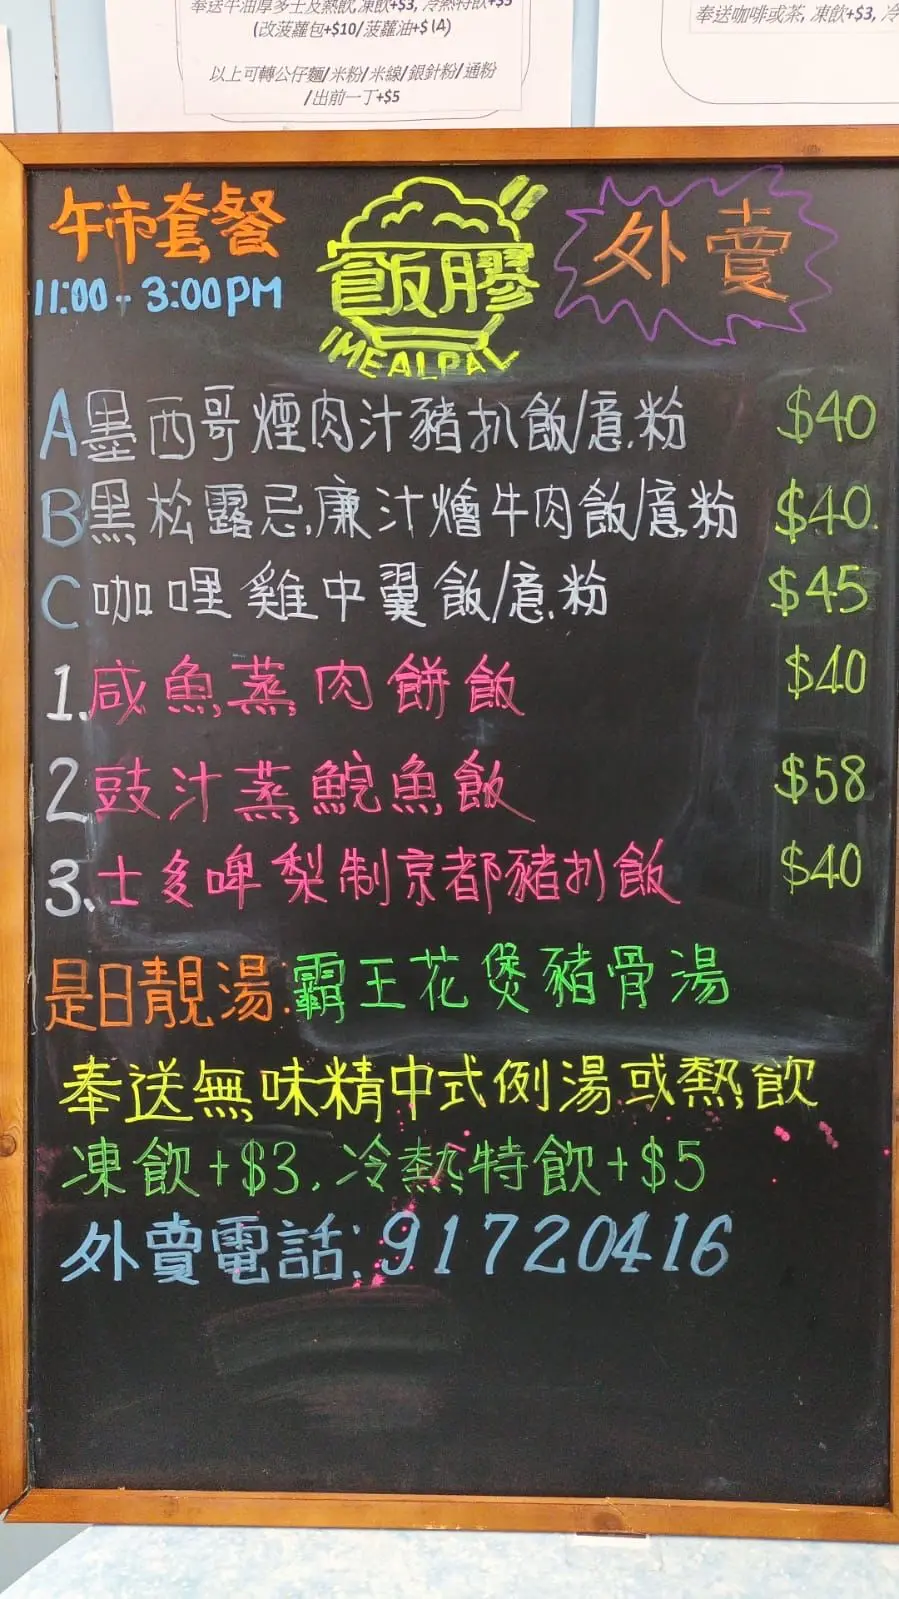 奉送牛油厚多士及熱飲,凍飲+$3, 冷熱特飲+$5
(改菠蘿包+$10/菠蘿油+$
以上可轉公仔麵/米粉/米線/銀針粉/通粉
/出前一丁+$5
奉送咖啡或茶, 凍飲+$3, 冷
午市套餐
11:00 - 3:00PM
飯膠
IMEALPAL
外賣
A墨西哥煙肉汁豬扒飯/意粉 $40
B黑松露忌廉汁燴牛肉飯/意粉 $40
C咖哩雞中翼飯/意粉 $45
1.咸魚蒸肉餅飯 $40
2豉汁蒸鯇魚飯 $58
3.士多啤梨制京都豬扒飯 $40
是日靚湯:霸王花煲豬骨湯
奉送無味精中式例湯或熱飲
凍飲+$3, 冷熱特飲+$5
外賣電話:91720416